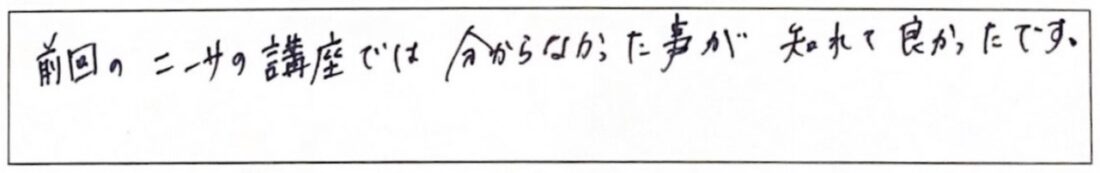 前回のニーサの講座では分からなかった事が知れて良かったです。